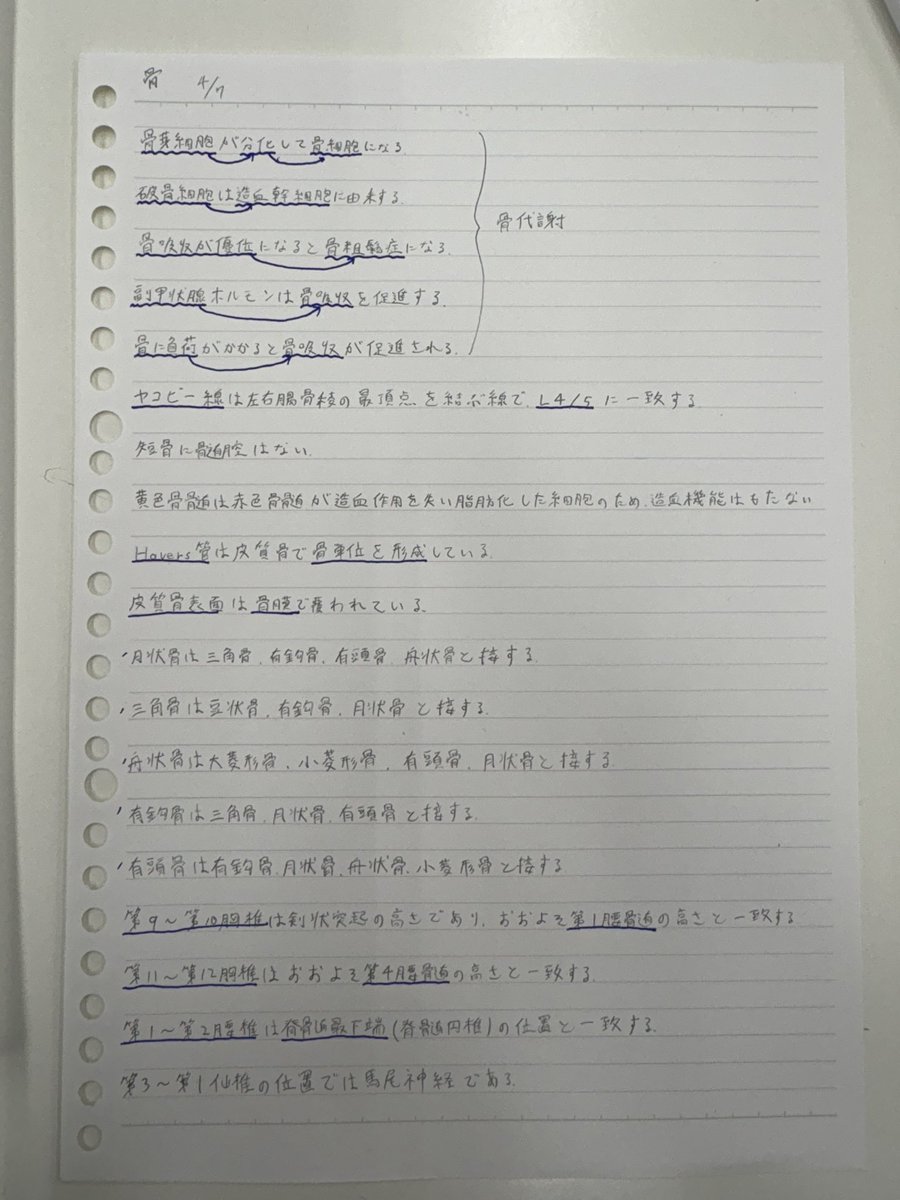 骨 4/7
骨芽細胞が分化して骨細胞になる
破骨細胞は造血幹細胞に由来する。
骨吸収が優位になると骨粗鬆症になる。
骨代謝
副甲状腺ホルモンは骨吸収を促進する。
骨に負荷がかかると骨吸収が促進される。
ヤコビー線は左右腸骨稜の最頂点を結ぶ線で、L4/5に一致する。
短骨に骨髄腔はない。
黄色骨髄は赤色骨髄が造血作用を失い脂肪化した細胞のため、造血機能はもたない
Havers管は皮質骨で骨単位を形成している。
皮質骨表面は骨膜で覆われている。
・月状骨は三角骨、有鈎骨、有頭骨、舟状骨と接する。
・三角骨は豆状骨、有鈎骨、月状骨と接する。
・舟状骨は大菱形骨、小菱形骨、有頭骨、月状骨と接する。
・有鈎骨は三角骨、月状骨、有頭骨と接する。
・有頭骨は有鈎骨、月状骨、舟状骨、小菱形骨と接する
第9〜第10胸椎は剣状突起の高さであり、おおよそ第1腰髄の高さと一致する
第11〜第12胸椎はおおよそ第4腰髄の高さと一致する。
第1〜第2腰椎は脊髄最下端(脊髄円椎)の位置と一致する。
第3〜第1仙椎の位置では馬尾神経である。